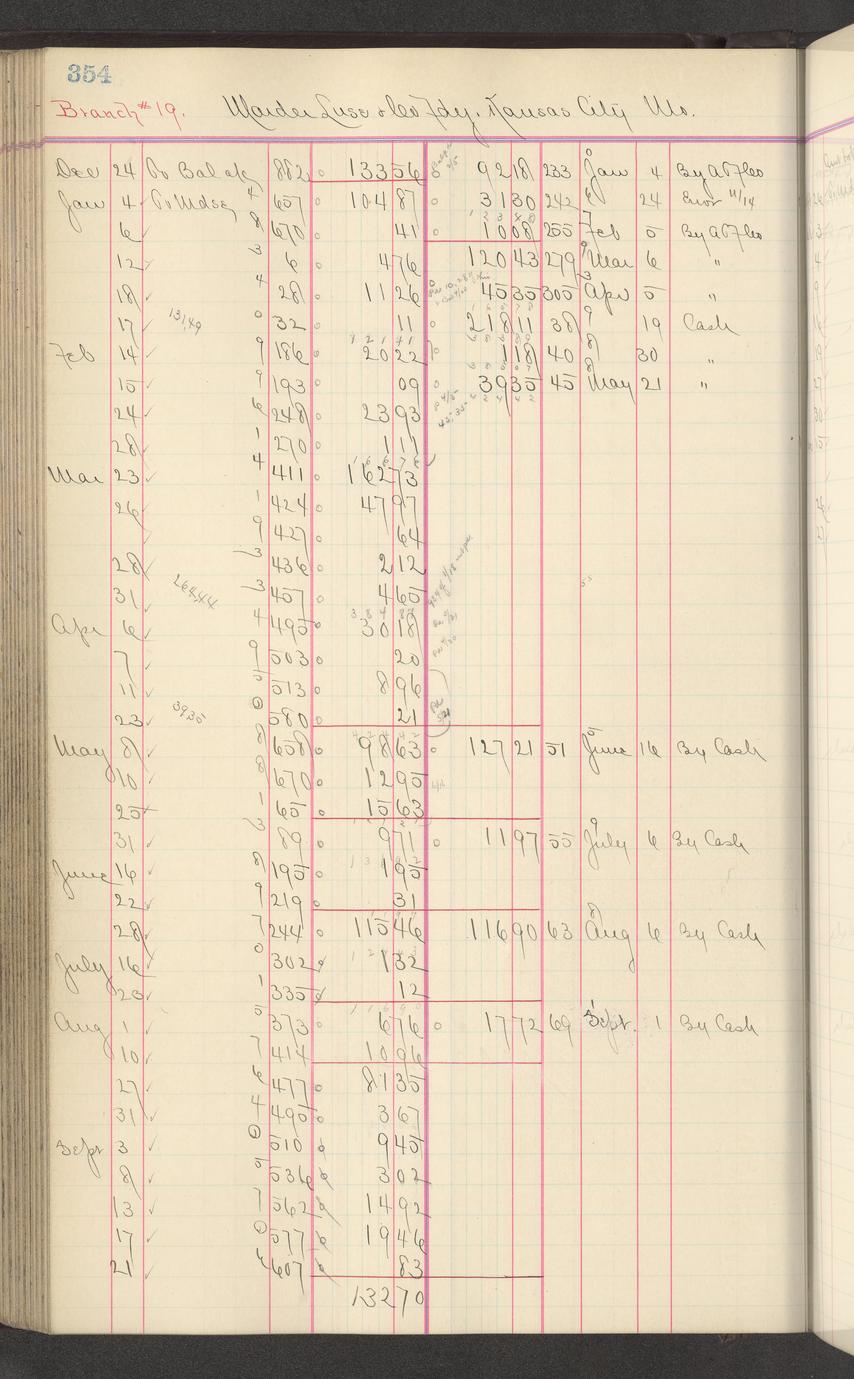 354
Branch #19. Marder Luse & Co Fdy. Kansas City Mo.
Dec 24 To Bal 882 133 56 92 18 233 Jan 4 By
Jan 4 To Mdse 4 657 104 87 31 30 242 24 Error 11/14
6 8 670 41 10 08 255 Feb 5 By
12 3 6 4 76 120 43 279 Mar 6 "
18 4 28 11 26 45 35 305 Apr 5 "
17 131,49 0 32 11 218 11 38 19 Cash
Feb 14 9 186 20 22 1 18 40 30 "
15 9 193 09 39 35 45 May 21 "
24 6 248 23 93
28 1 270 1 11
Mar 23 4 411 162 73
26 1 424 47 97
9 427 64
28 3 436 2 12
31 264,44 3 457 4 65
Apr 6 4 495 30 18
7 9 503 20
11 5 513 8 96
23 3935 0 580 21
May 8 8 658 98 63 127 21 51 June 16 By Cash
10 8 670 12 95
25 1 65 15 63
31 3 89 9 71 11 97 55 July 6 By Cash
June 16 8 195 1 95
22 9 219 31
28 7 244 115 46 116 90 63 Aug 6 By Cash
July 16 0 302 1 32
23 1 335 12
Aug 1 5 373 6 76 17 72 69 Sept. 1 By Cash
10 7 414 10 96
27 6 477 81 35
31 4 495 3 67
Sept 3 0 510 9 45
8 5 536 3 02
13 7 562 14 92
17 0 577 19 46
21 607 83
132 70